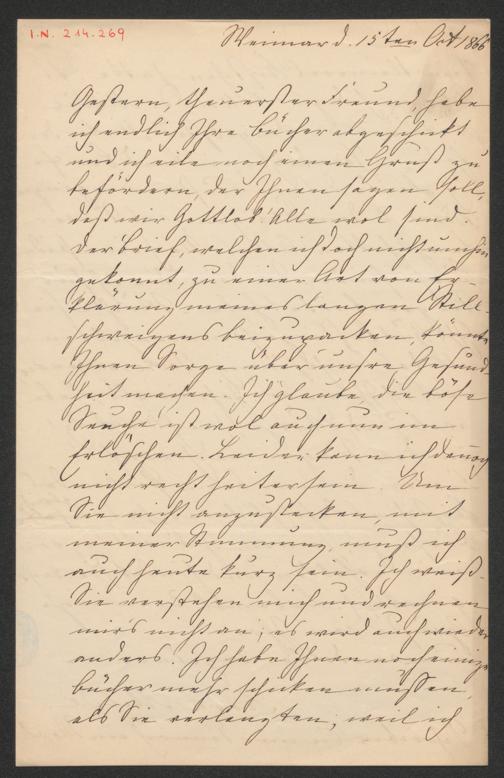 I.N. 214.269
Weimar d. 15ten Oct 1866
Gestern, theuerster Freund, habe
ich endlich Ihre Bücher abgeschickt
und ich eile noch einen Gruß zu
befördern, der Ihnen sagen soll,
daß wir Gottlob! Alle wol sind.
Der Brief, welchen ich doch nicht umhin
gekonnt, zu einer Art von Er-
klärung meines langen Still-
schweigens beizupacken, könnte
Ihnen Sorge über unsre Gesund-
heit machen. Ich glaube, die böse
Seuche ist wol auch nun im
Erlöschen. Leider kann ich dennoch
nicht recht heiter sein. Um
Sie nicht anzustecken, mit
meiner Stimmung, muß ich
auch heute kurz sein. Ich weiß
Sie verstehen mich und rechnen
mirs nicht an; es wird auch wieder
anders. Ich habe Ihnen noch einige
Bücher mehr schicken müssen,
als Sie verlangten, weil ich